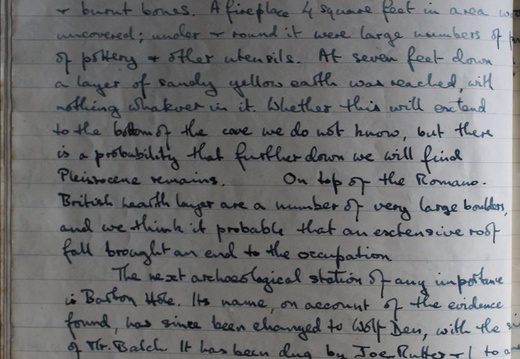 & burnt bones. A fireplace 4 square feet in area
uncovered; under & round it were large numbers of
of pottery & other utensils. At seven feet down
a layer of sandy yellow earth was reached, with
nothing whatever in it. Whether this will extend
to the bottom of the cave we do not know, but there
is a probability that further down we will find
Pleistocene remains. On top of the Romano-
British hearth layer are a number of very large boulders,
and we think it probable that an extensive roof
fall brought an end to the occupation
The next archaeological station of any importance
is Barton Hole. Its name, on account of the evidence
found, has since been changed to Wolf Den, with the
of Mr. Balch. It has been dug by Joe